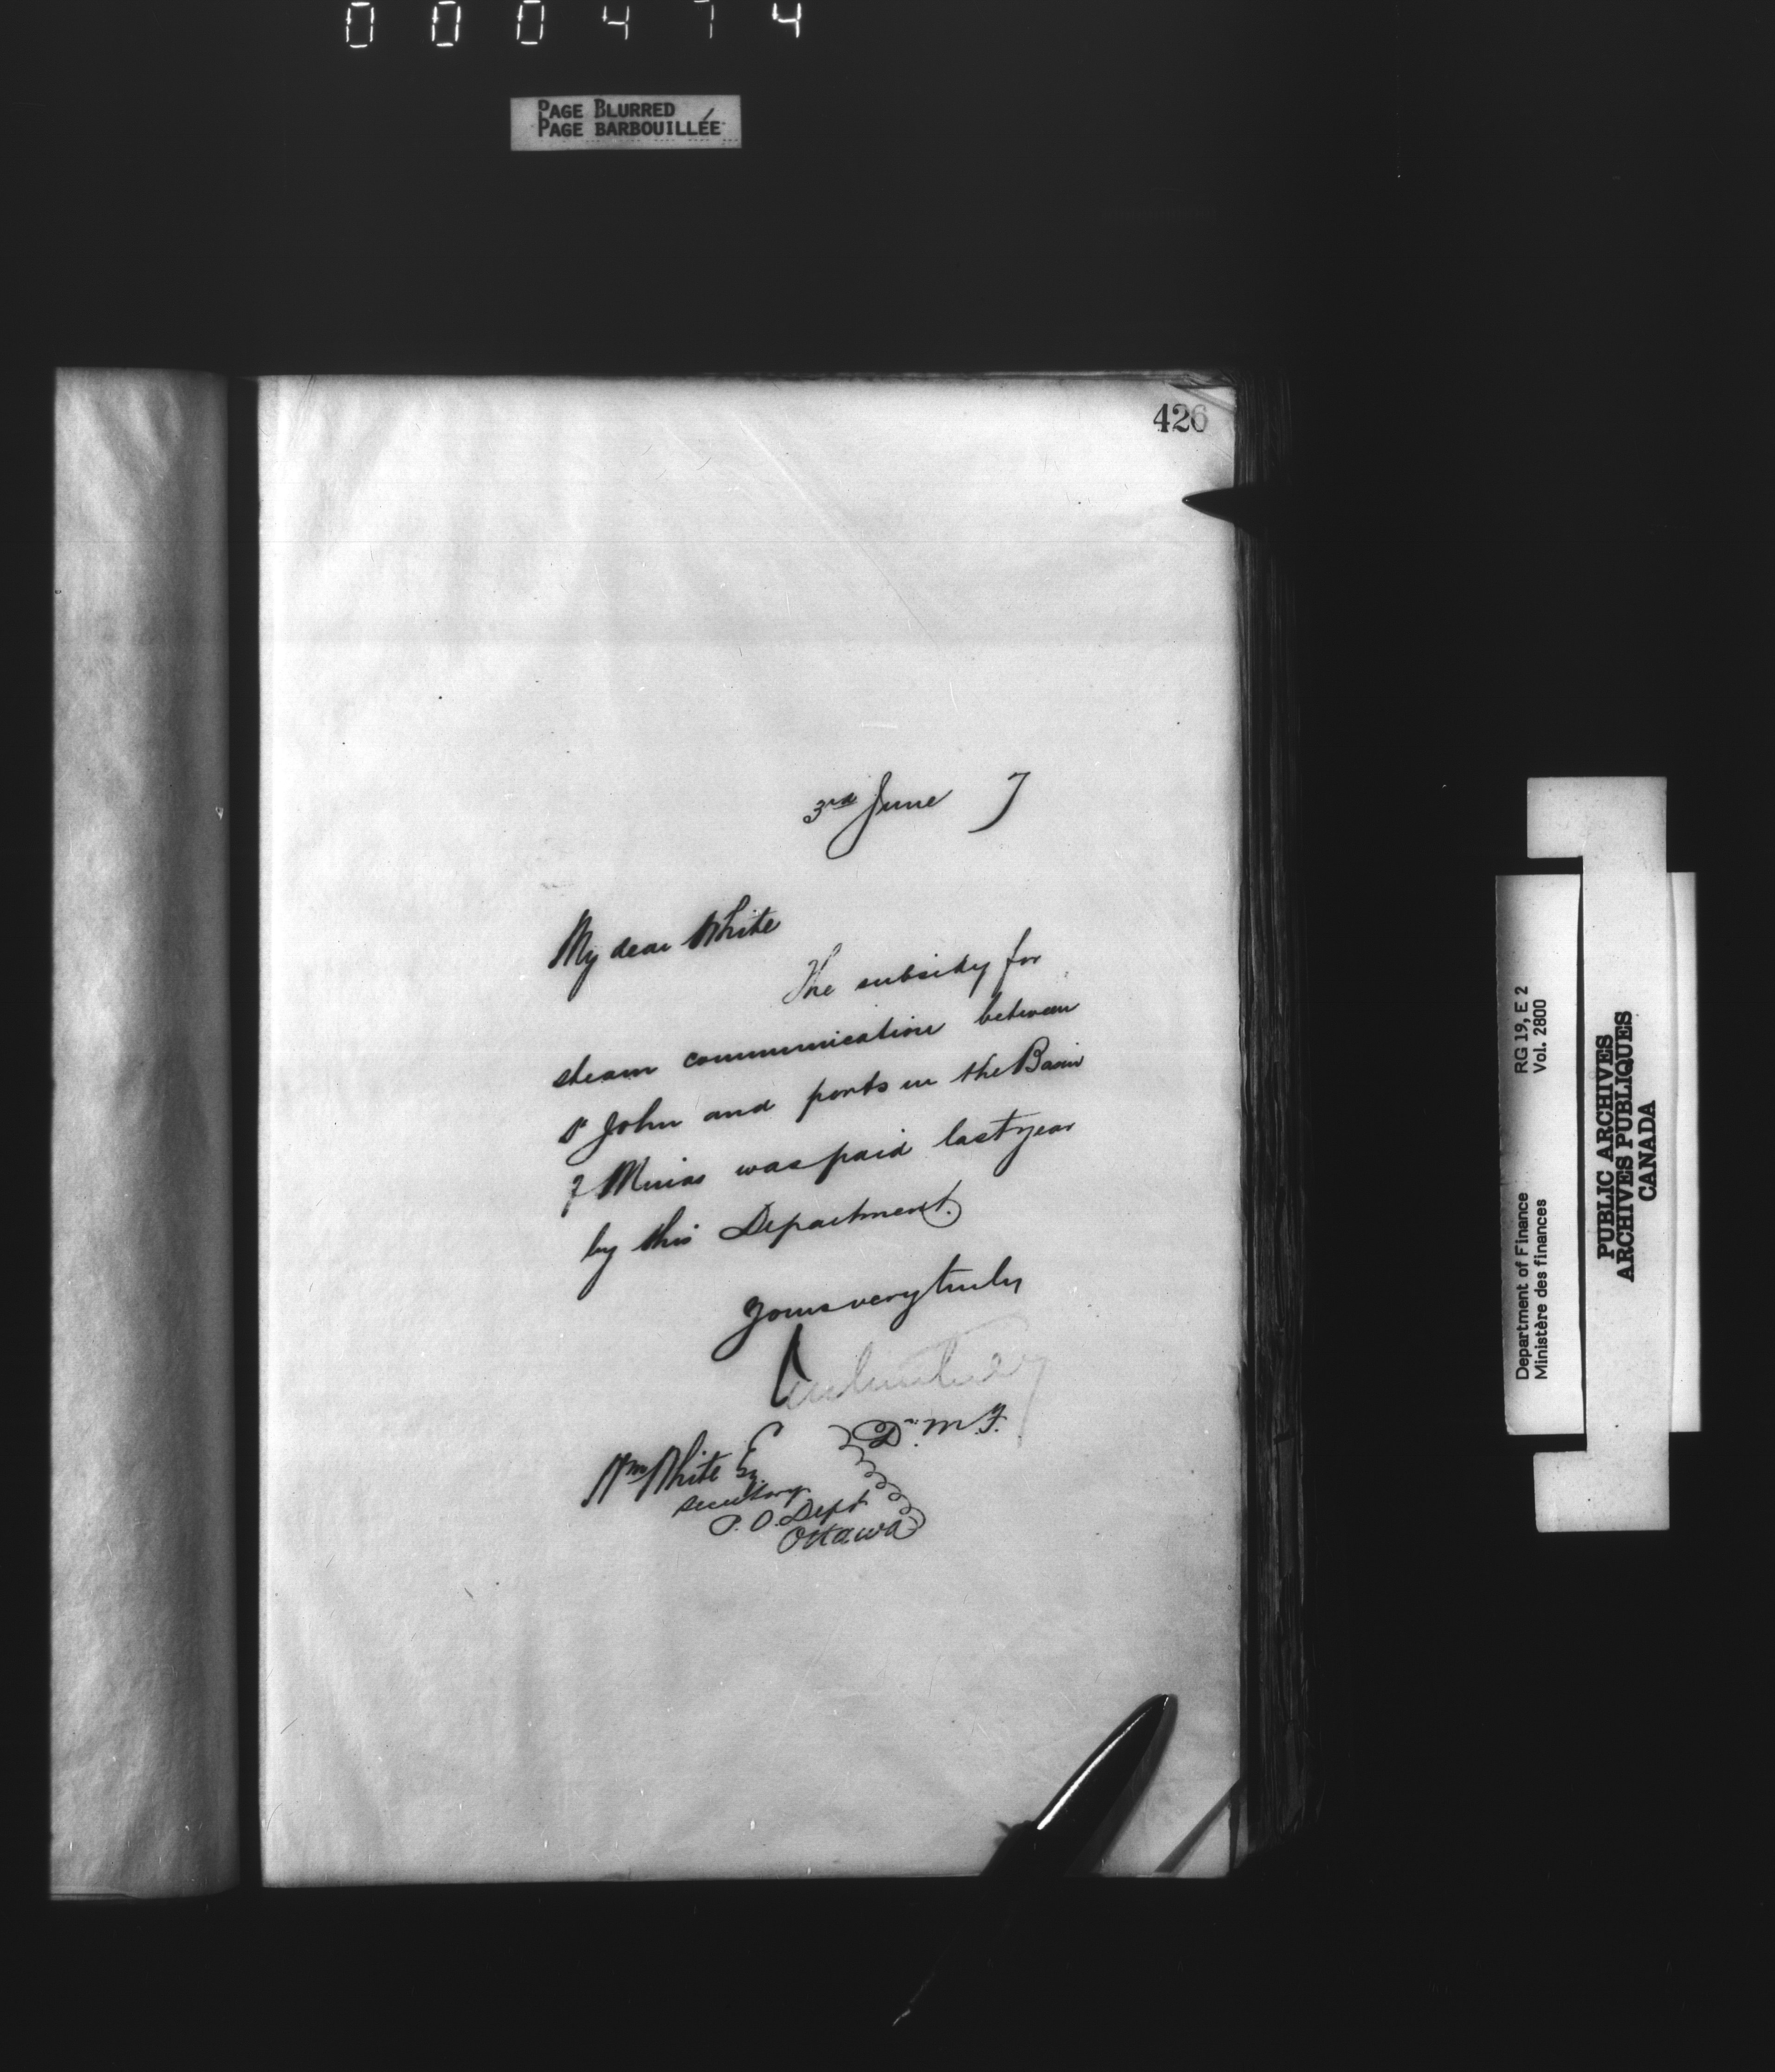 000474
PAGE BLURRED
PAGE BARBOUILLÉE
426
3rd June 7
My dear White
The subsidy for
steam communication between
St John and ports in the Basin
of Minas was paid last year
by this Department.
Yours very truly
D. M. F.
Wm White Esq.
Secretary
P. O. Dept
Ottawa
Department of Finance RG 19, E 2
Ministère des finances Vol. 2800
PUBLIC ARCHIVES
ARCHIVES PUBLIQUES
CANADA